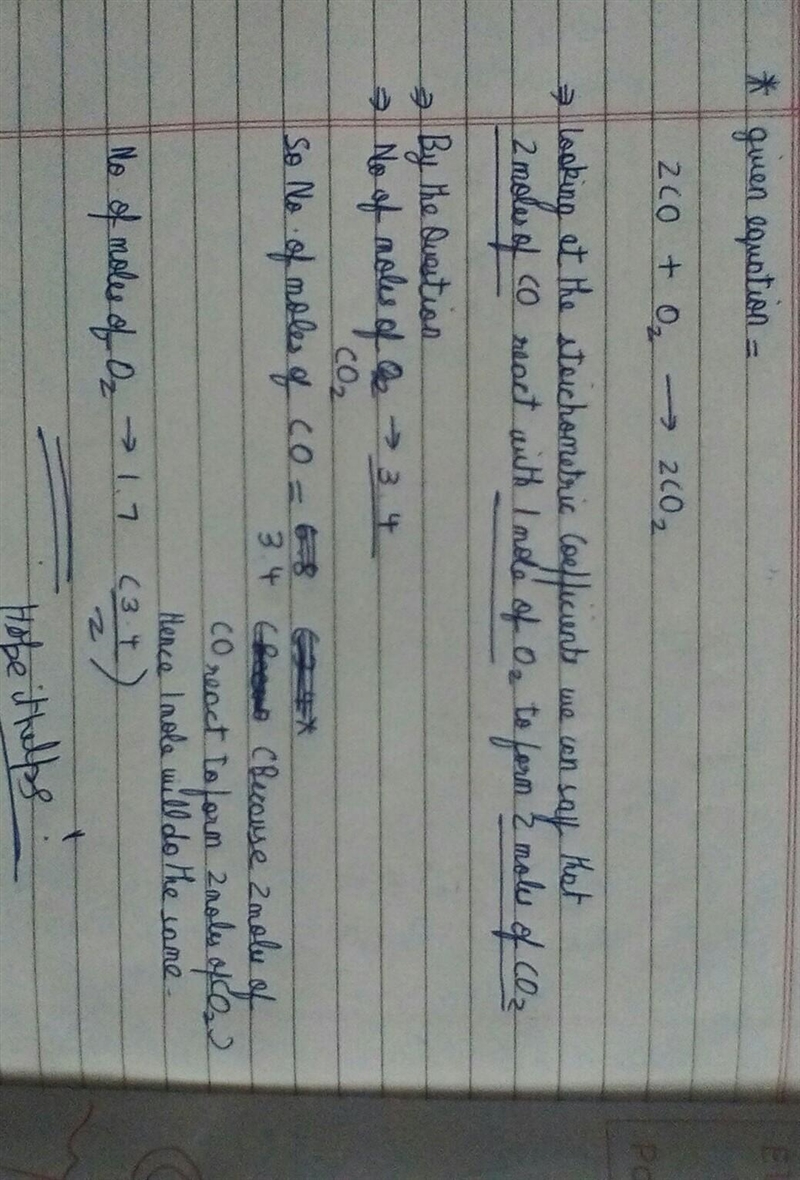 * given equation =
2CO + O₂ → 2CO₂
⇒ looking at the stoichometric Coefficients we can say that
2 moles of CO react with 1 mole of O₂ to form 2 moles of CO₂
⇒ By the Question
⇒ No of moles of CO₂ → 3.4
So No. of moles of CO = 3.4 (Because 2 moles of
CO react to form 2 moles of CO₂)
Hence 1 mole will do the same.
No of moles of O₂ → 1.7 (3.4/2)
Hope it helps.